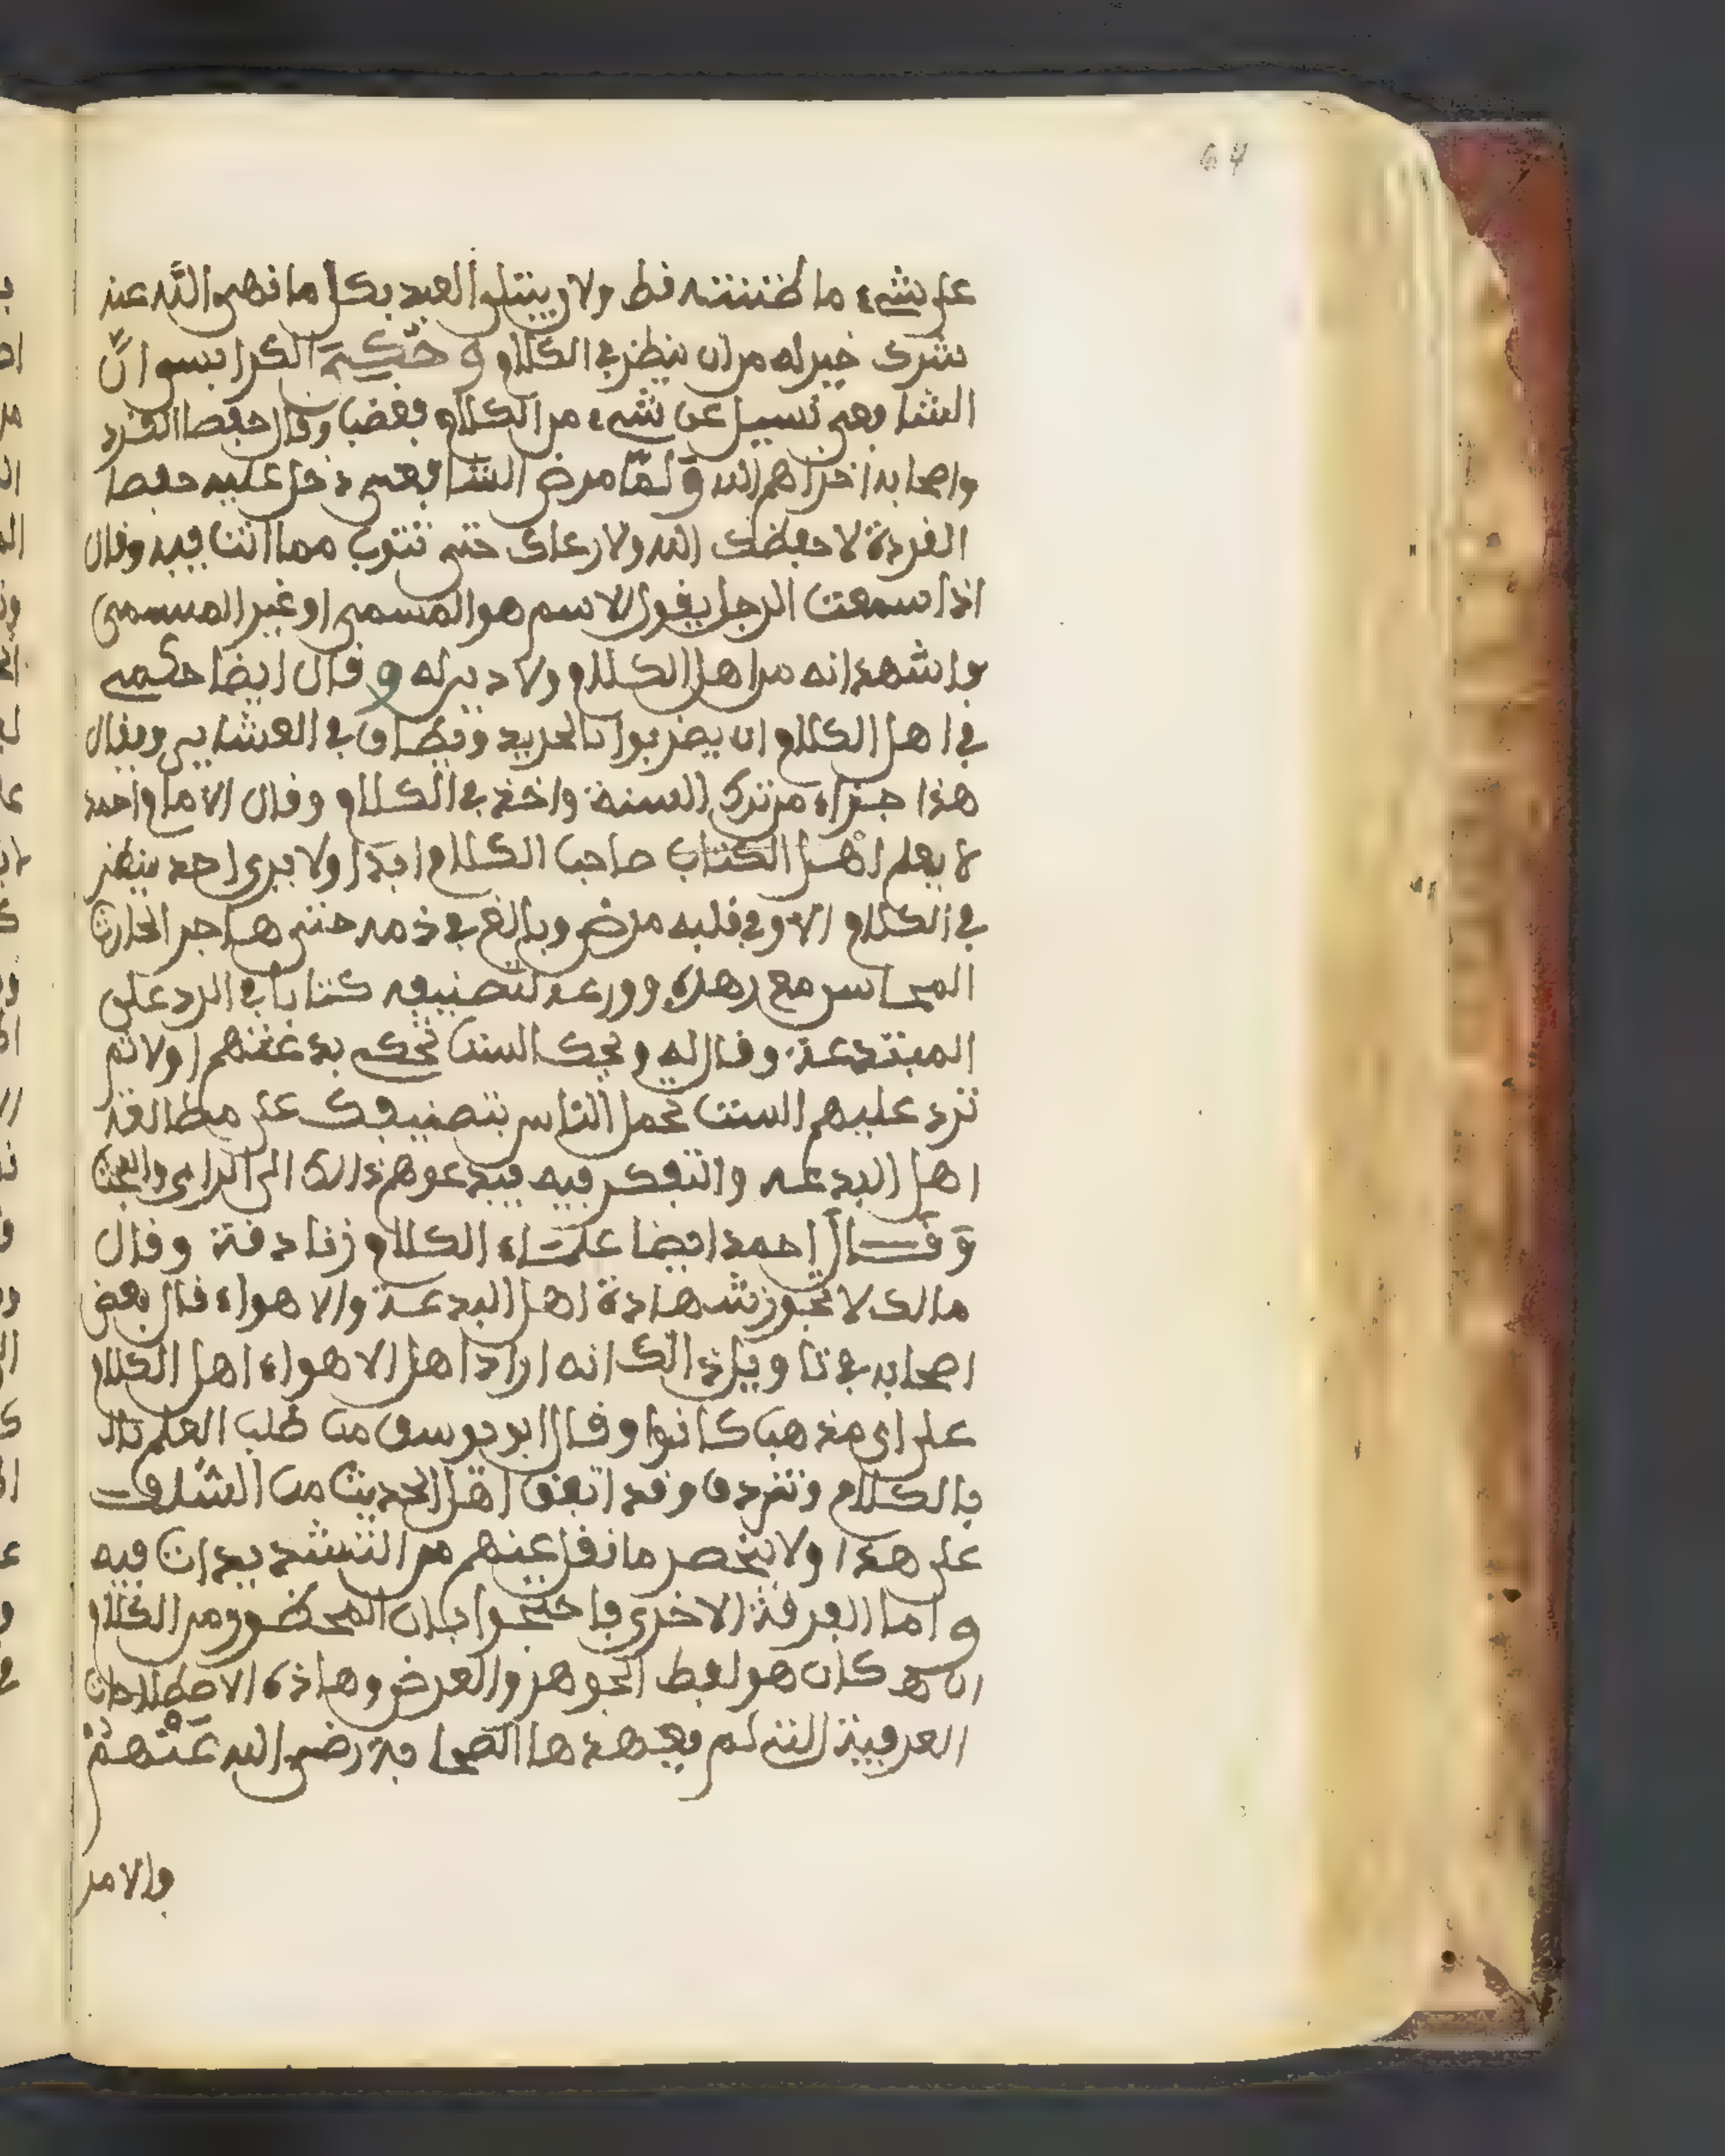 64
على شيء ما ظننته قط ولان يبتلى العبد بكل ما نهى الله عنه
شرك خير له من ان ينظر في الكلام و حكى الكرابيسي ان
الشافعي سيل عن شيء من الكلام فغضب وقال حفصا الفرد
واصحابه اخزاهم الله و لما مرض الشافعي دخل عليه حفصا
الفردة لا حفظك الله ولا رعاك حتى تتوب مما انت فيه وقال
اذا سمعت الرجل يقول الاسم هو المسمى او غير المسمى
واشهد انه من اهل الكلام ولا دين له و قال ايضا حكمي
في اهل الكلام ان يضربوا بالجريد ويطاف في العشاير ويقال
هذا جزاء من ترك السنة واخذ في الكلام وقال الامام احمد
لا يعلم اهل الكتاب صاحب الكلام ابدا ولا يرى احد ينظر
في الكلام الا وفي قلبه مرض وبالغ في ذمه حتى هاجر الحارث
المحاسبي مع زهده وورعه لتصنيفه كتابا في الرد على
المبتدعة وقال له ويحك الست تحكي بدعتهم اولا ثم
ترد عليهم الست تحمل الناس بتصنيفك على مطالعة
اهل البدعه والتفكر فيه فيدعوهم ذالك الى الراي والبحث
و قال احمد ايضا علماء الكلام زنادقة وقال
مالك لا تجوز شهادة اهل البدعة والاهواء قال بعض
اصحابه في تاويل ذالك انه اراد اهل الاهواء اهل الكلام
على اي مذهب كانوا وقال ابو يوسف من طلب العلم
بالكلام وتزندق وقد اتفق اهل الحديث من السلف
على هذا ولا ينحصر ما نقل عنهم من التشديدات فيه
و اما الفرقة الاخرى فاحتجوا بان المحظور من الكلام
ان كان هو لفظ الجوهر والعرض وهاذه الاصطلاحات
العرفية التي لم يعهدها الصحابة رضى الله عنهم
والامر